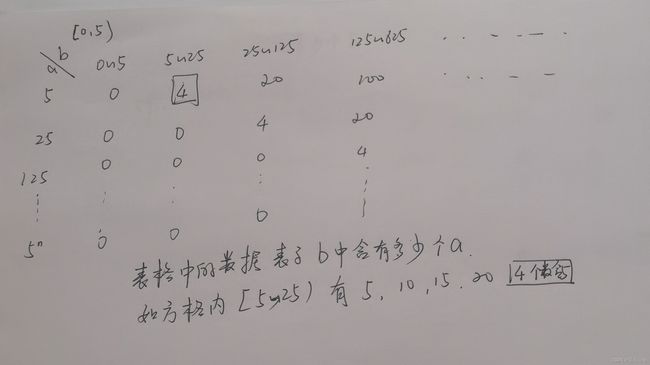 [0,5)
b
a
0~5 5~25 25~125 125~625 ......
5 0 4 20 100 ......
25 0 0 4 20
125 0 0 0 4
5ⁿ 0 0 0
表格中的数据表示b中含有多少个a.
如方格内 [5~25) 有 5, 10, 15, 20 4个